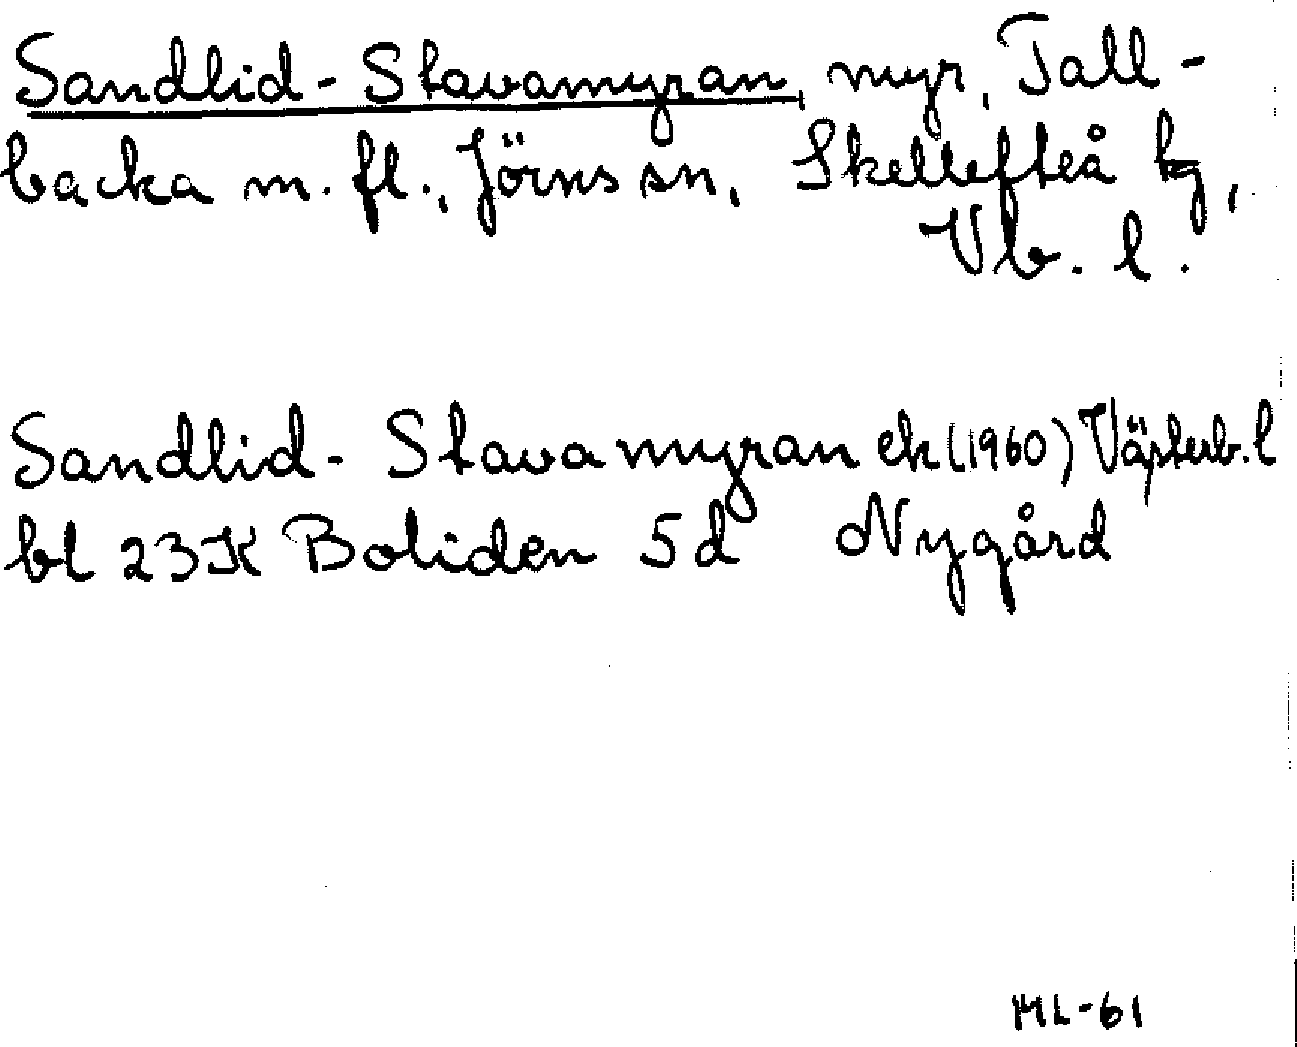 Sandlid-Stavamyran, myr, Tall-
backa m. fl., Jörns sn, Skellefteå tg,
Vb. l.
Sandlid-Stavamyran ek (1960) Västerb. l
bl 23K Boliden 5d Nygård
ML-61